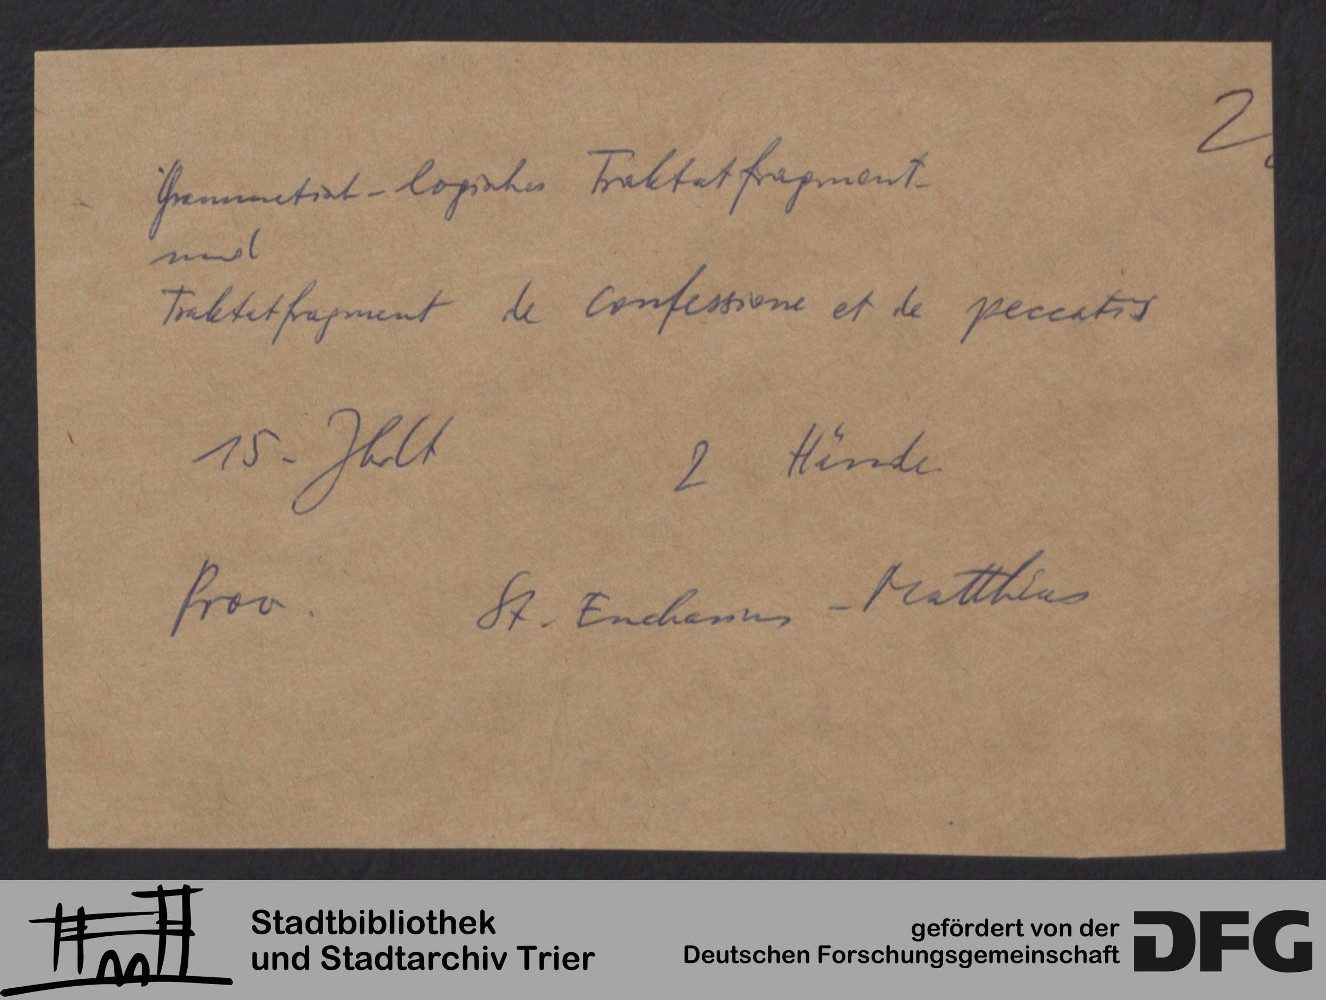 2.
Grammatisch-logisches Traktatfragment
und
Traktatfragment de confessione et de peccatis
15. Jhdt 2 Hände
Prov. St. Eucharius - Matthias
Stadtbibliothek
und Stadtarchiv Trier
gefördert von der
Deutschen Forschungsgemeinschaft
DFG